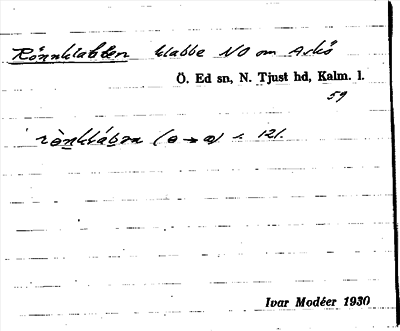 Rönnklabben klabbe NO om Askö
Ö. Ed sn, N. Tjust hd, Kalm. l.
59
121.
Ivar Modéer 1930